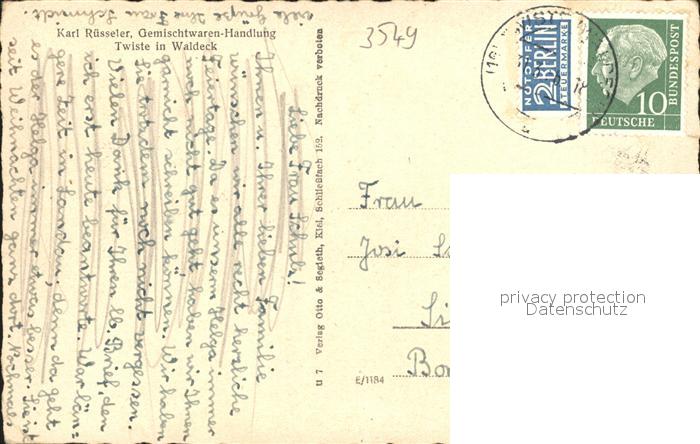 Karl Rüsseler, Gemischtwaren-Handlung
Twiste in Waldeck
3549
NOTOPFER
2 BERLIN
STEUERMARKE
10
DEUTSCHE
BUNDESPOST
Liebe Frau Schulz!
Ihnen u. Ihrer lieben Familie
wünschen wir alle recht herzliche
Feiertage. Da es unserm Helga immer
noch nicht gut geht haben wir Ihnen
garnicht schreiben können. Wir haben
Sie trotzdem noch nicht vergessen.
Vielen Dank für Ihren lb. Brief, den
ich erst heute beantworte. War län=
gere Zeit in Landau, denn da geht
es der Helga immer etwas besser. Sie ist
seit Weihnachten ganz dort. Nochmals
viele Grüße Ihre Frau Schmidt.
u 7 Verlag Otto & Segieth, Kiel, Schließfach 152, Nachdruck verboten
E/1184
Frau
Josi
Bon
privacy protection
Datenschutz